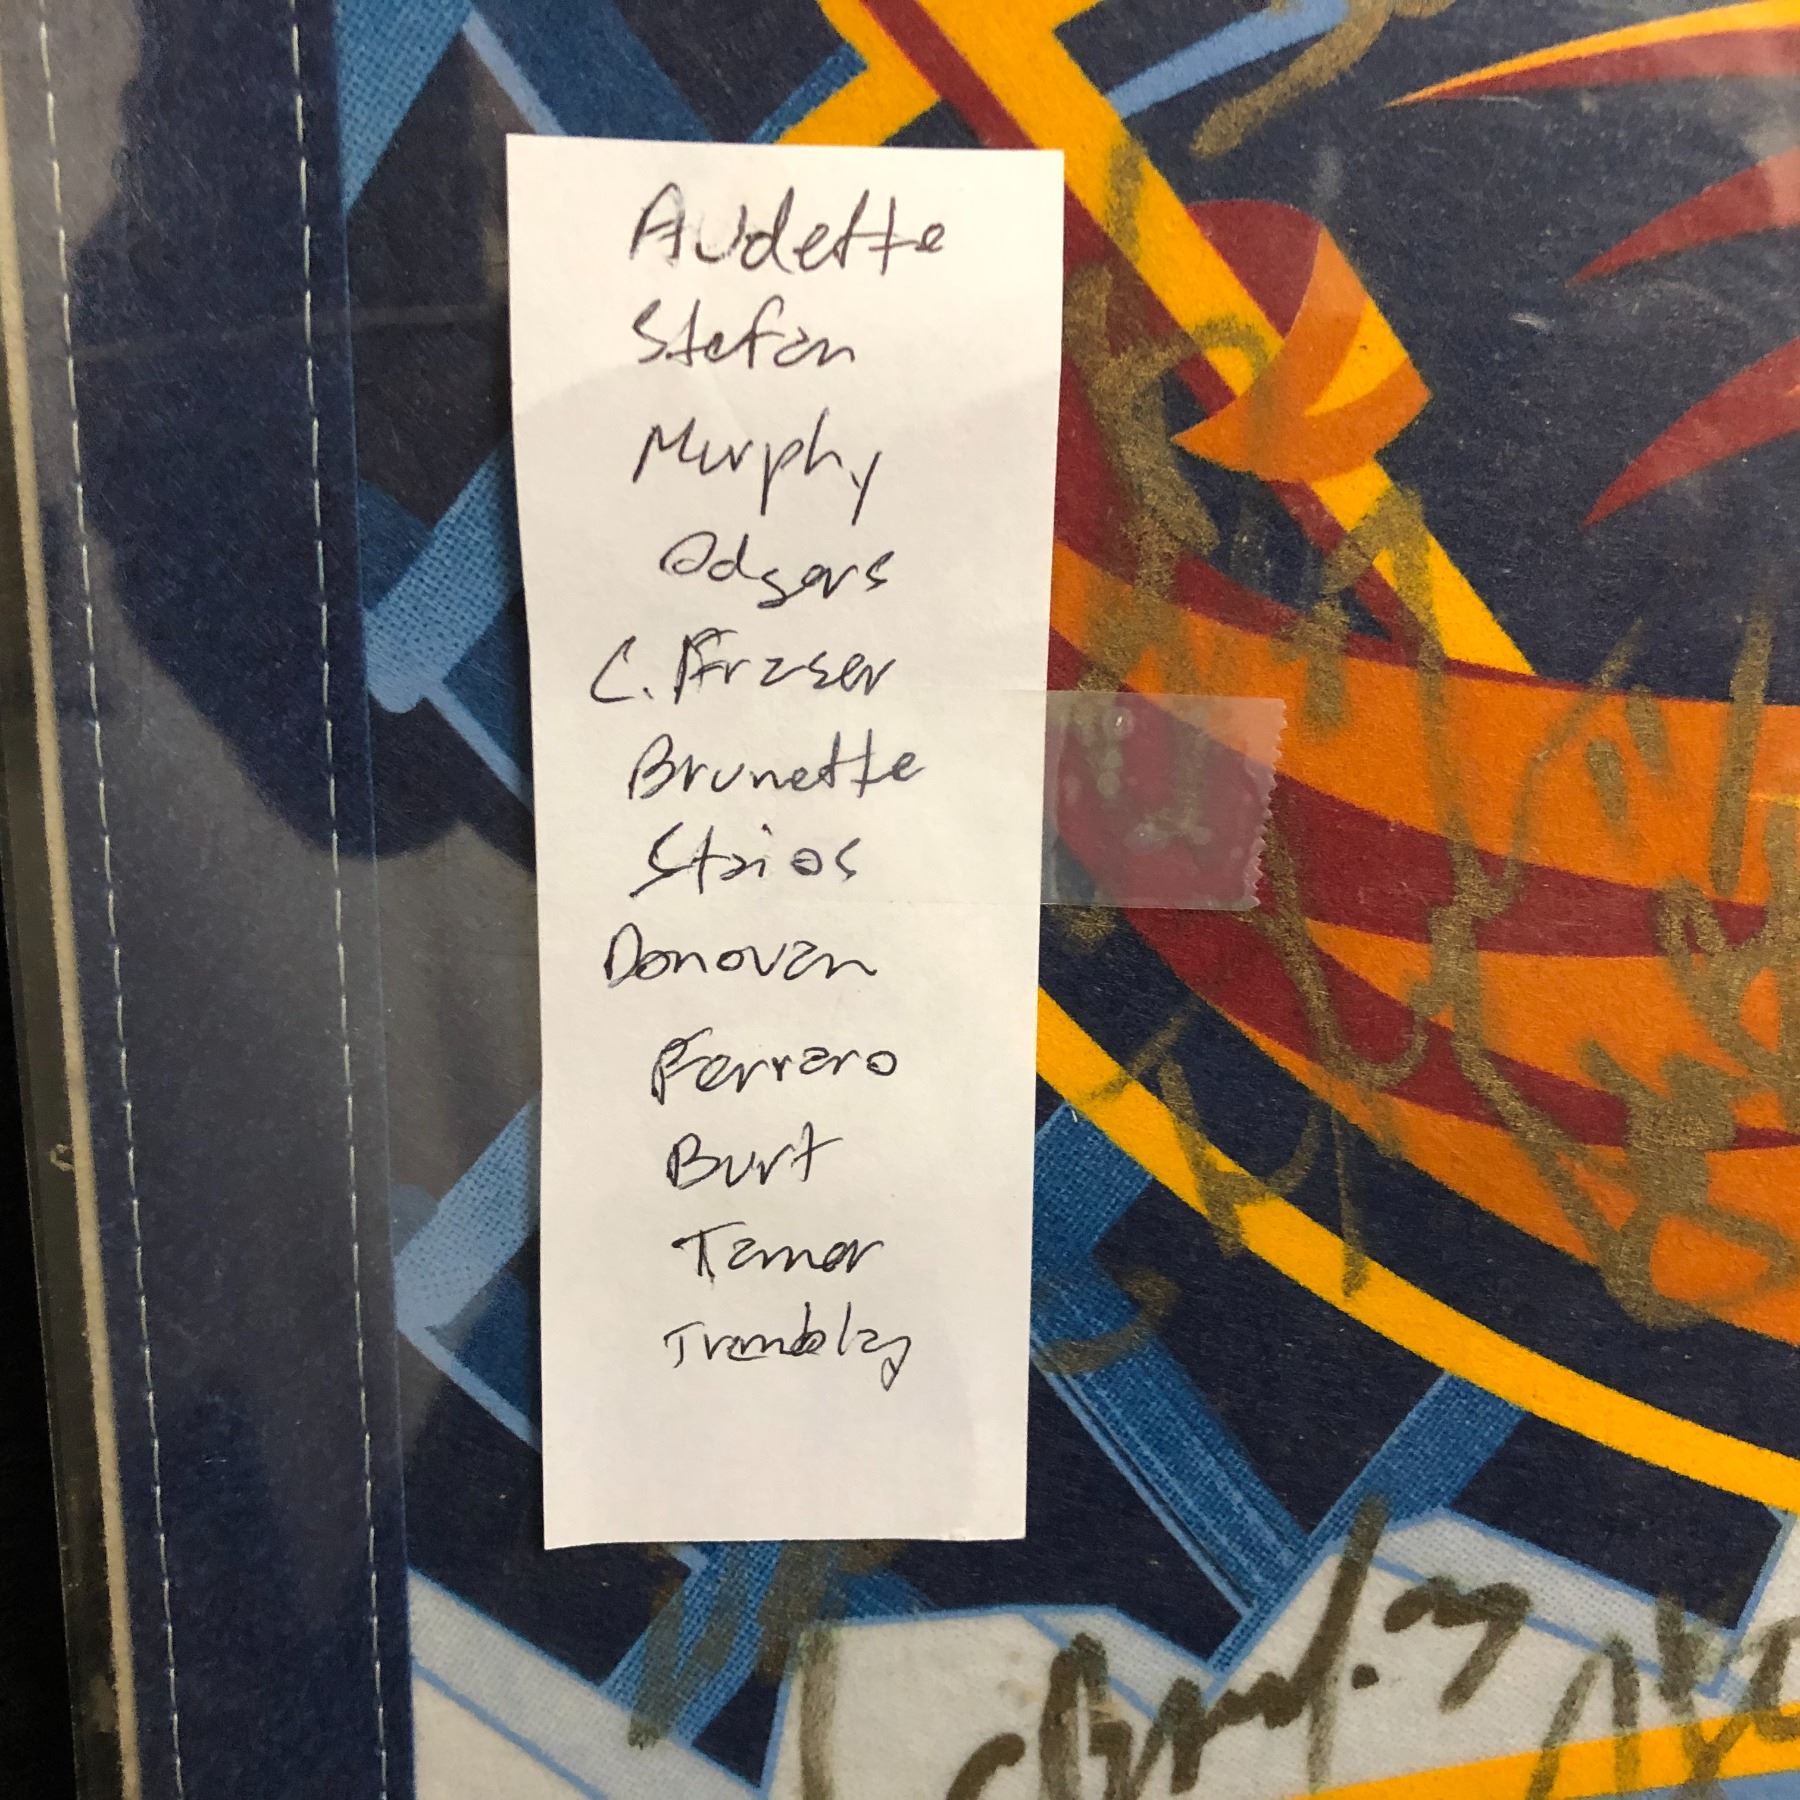 Audette
Stefan
Murphy
Odgers
C. Fraser
Brunette
Staios
Donovan
Ferraro
Burt
Tamer
Tremblay